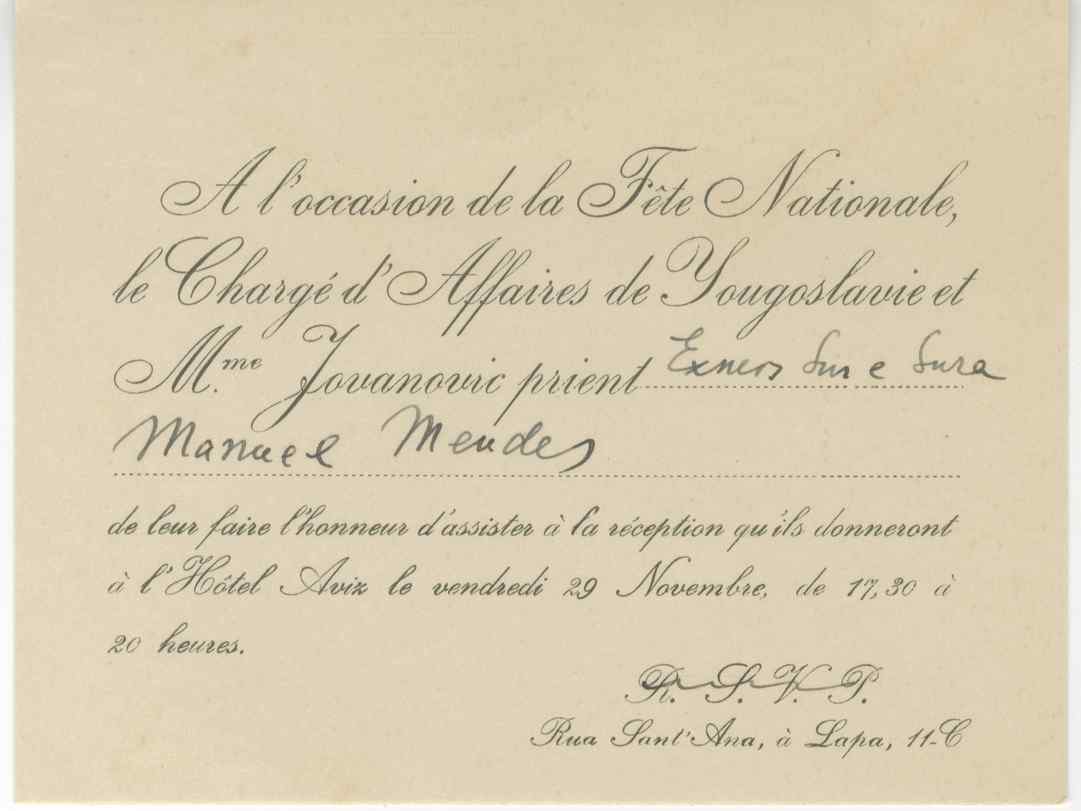 A l'occasion de la Fête Nationale,
le Chargé d'Affaires de Yougoslavie et
M.me Jovanovic prient Exmos Snr e Snra
Manuel Mendes
de leur faire l'honneur d'assister à la réception qu'ils donneront
à l'Hôtel Aviz le vendredi 29 Novembre, de 17,30 à
20 heures.
R. S. V. P.
Rua Sant'Ana, à Lapa, 11-C